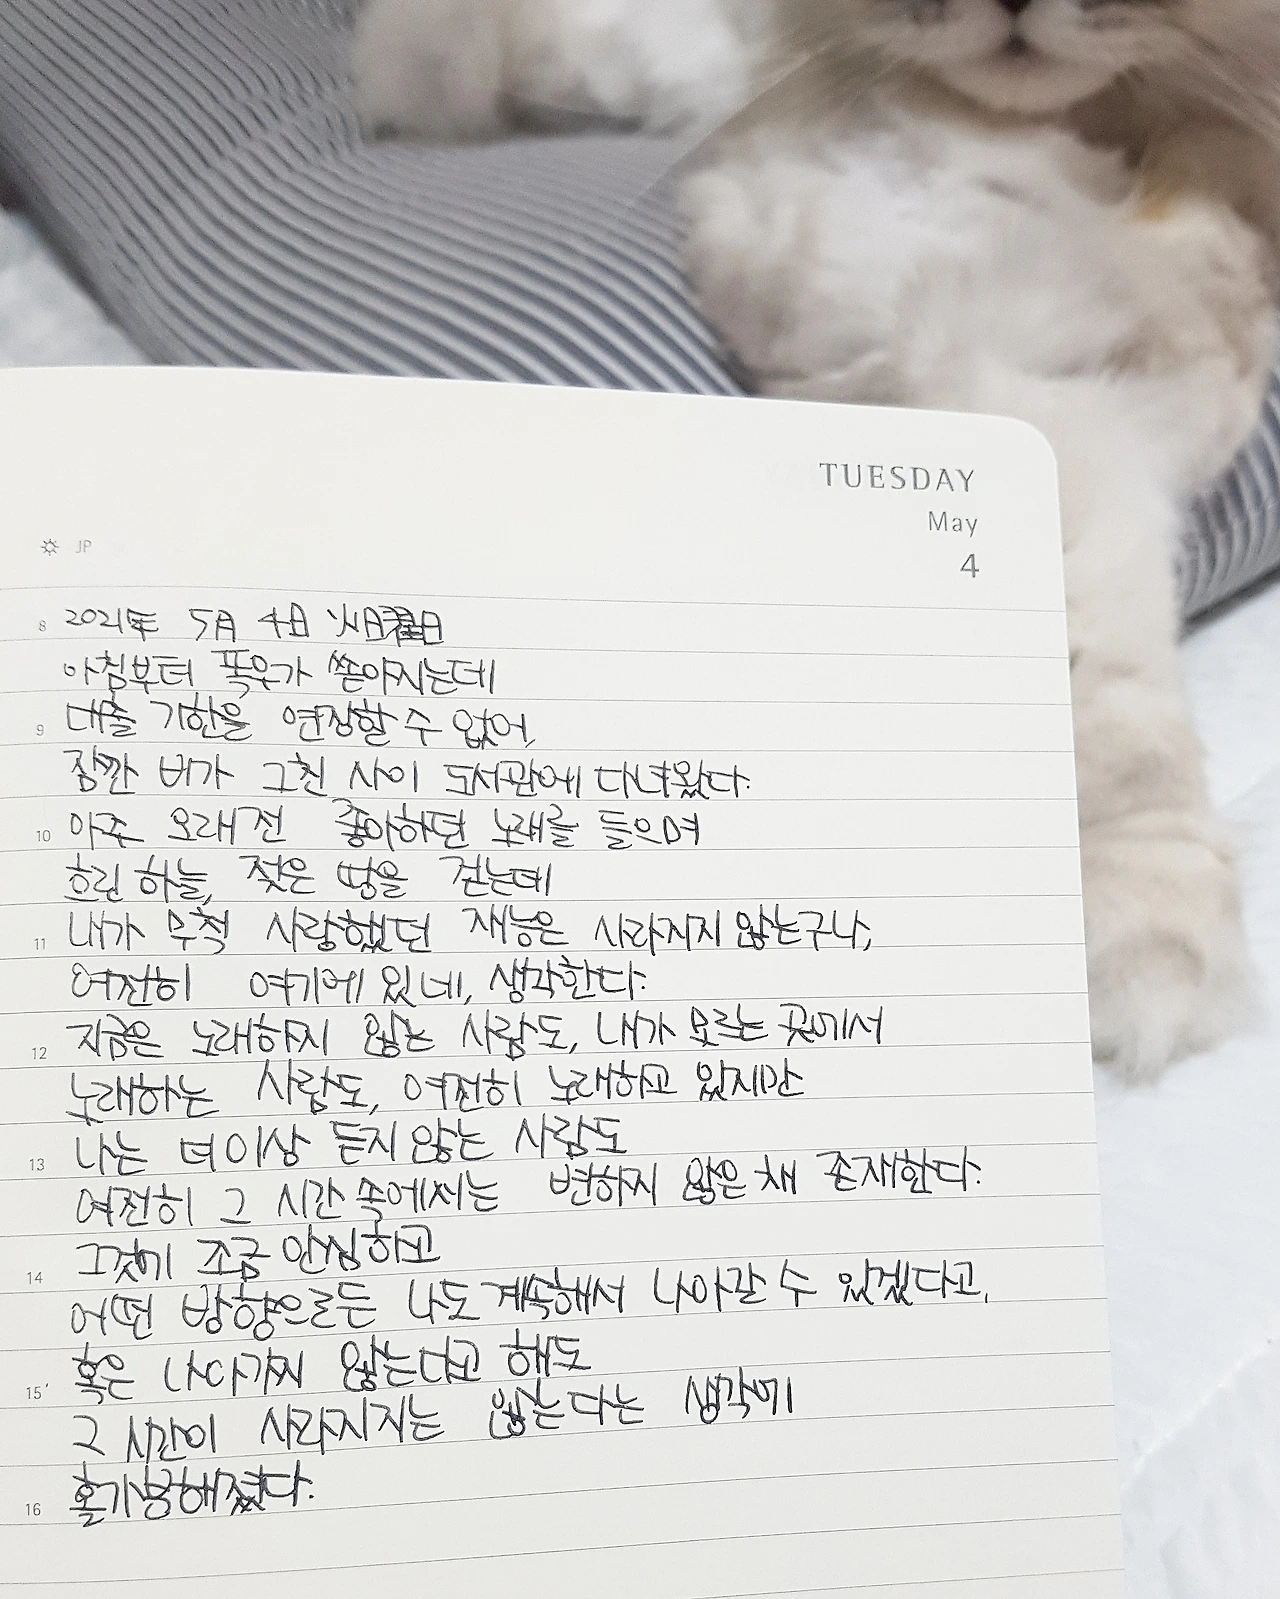 TUESDAY
May
4
JP
8 2021年 5月 4日 火曜日
아침부터 폭우가 쏟아지는데
9 대출 기한을 연장할 수 없어,
잠깐 비가 그친 사이 도서관에 다녀왔다.
10 아주 오래전 좋아하던 노래를 들으며
흐린 하늘, 젖은 땅을 걷는데
11 내가 무척 사랑했던 재능은 사라지지 않는구나,
여전히 여기에 있네, 생각한다.
12 지금은 노래하지 않는 사람도, 내가 모르는 곳에서
노래하는 사람도, 여전히 노래하고 있지만
13 나는 더이상 듣지 않는 사람도
여전히 그 시간 속에서는 변하지 않은 채 존재한다.
14 그것에 조금 안심하고
어떤 방향으로든 나도 계속해서 나아갈 수 있겠다고,
15 혹은 나아가지 않는다고 해도
그 시간이 사라지지는 않는다는 생각에
16 홀가분해졌다.